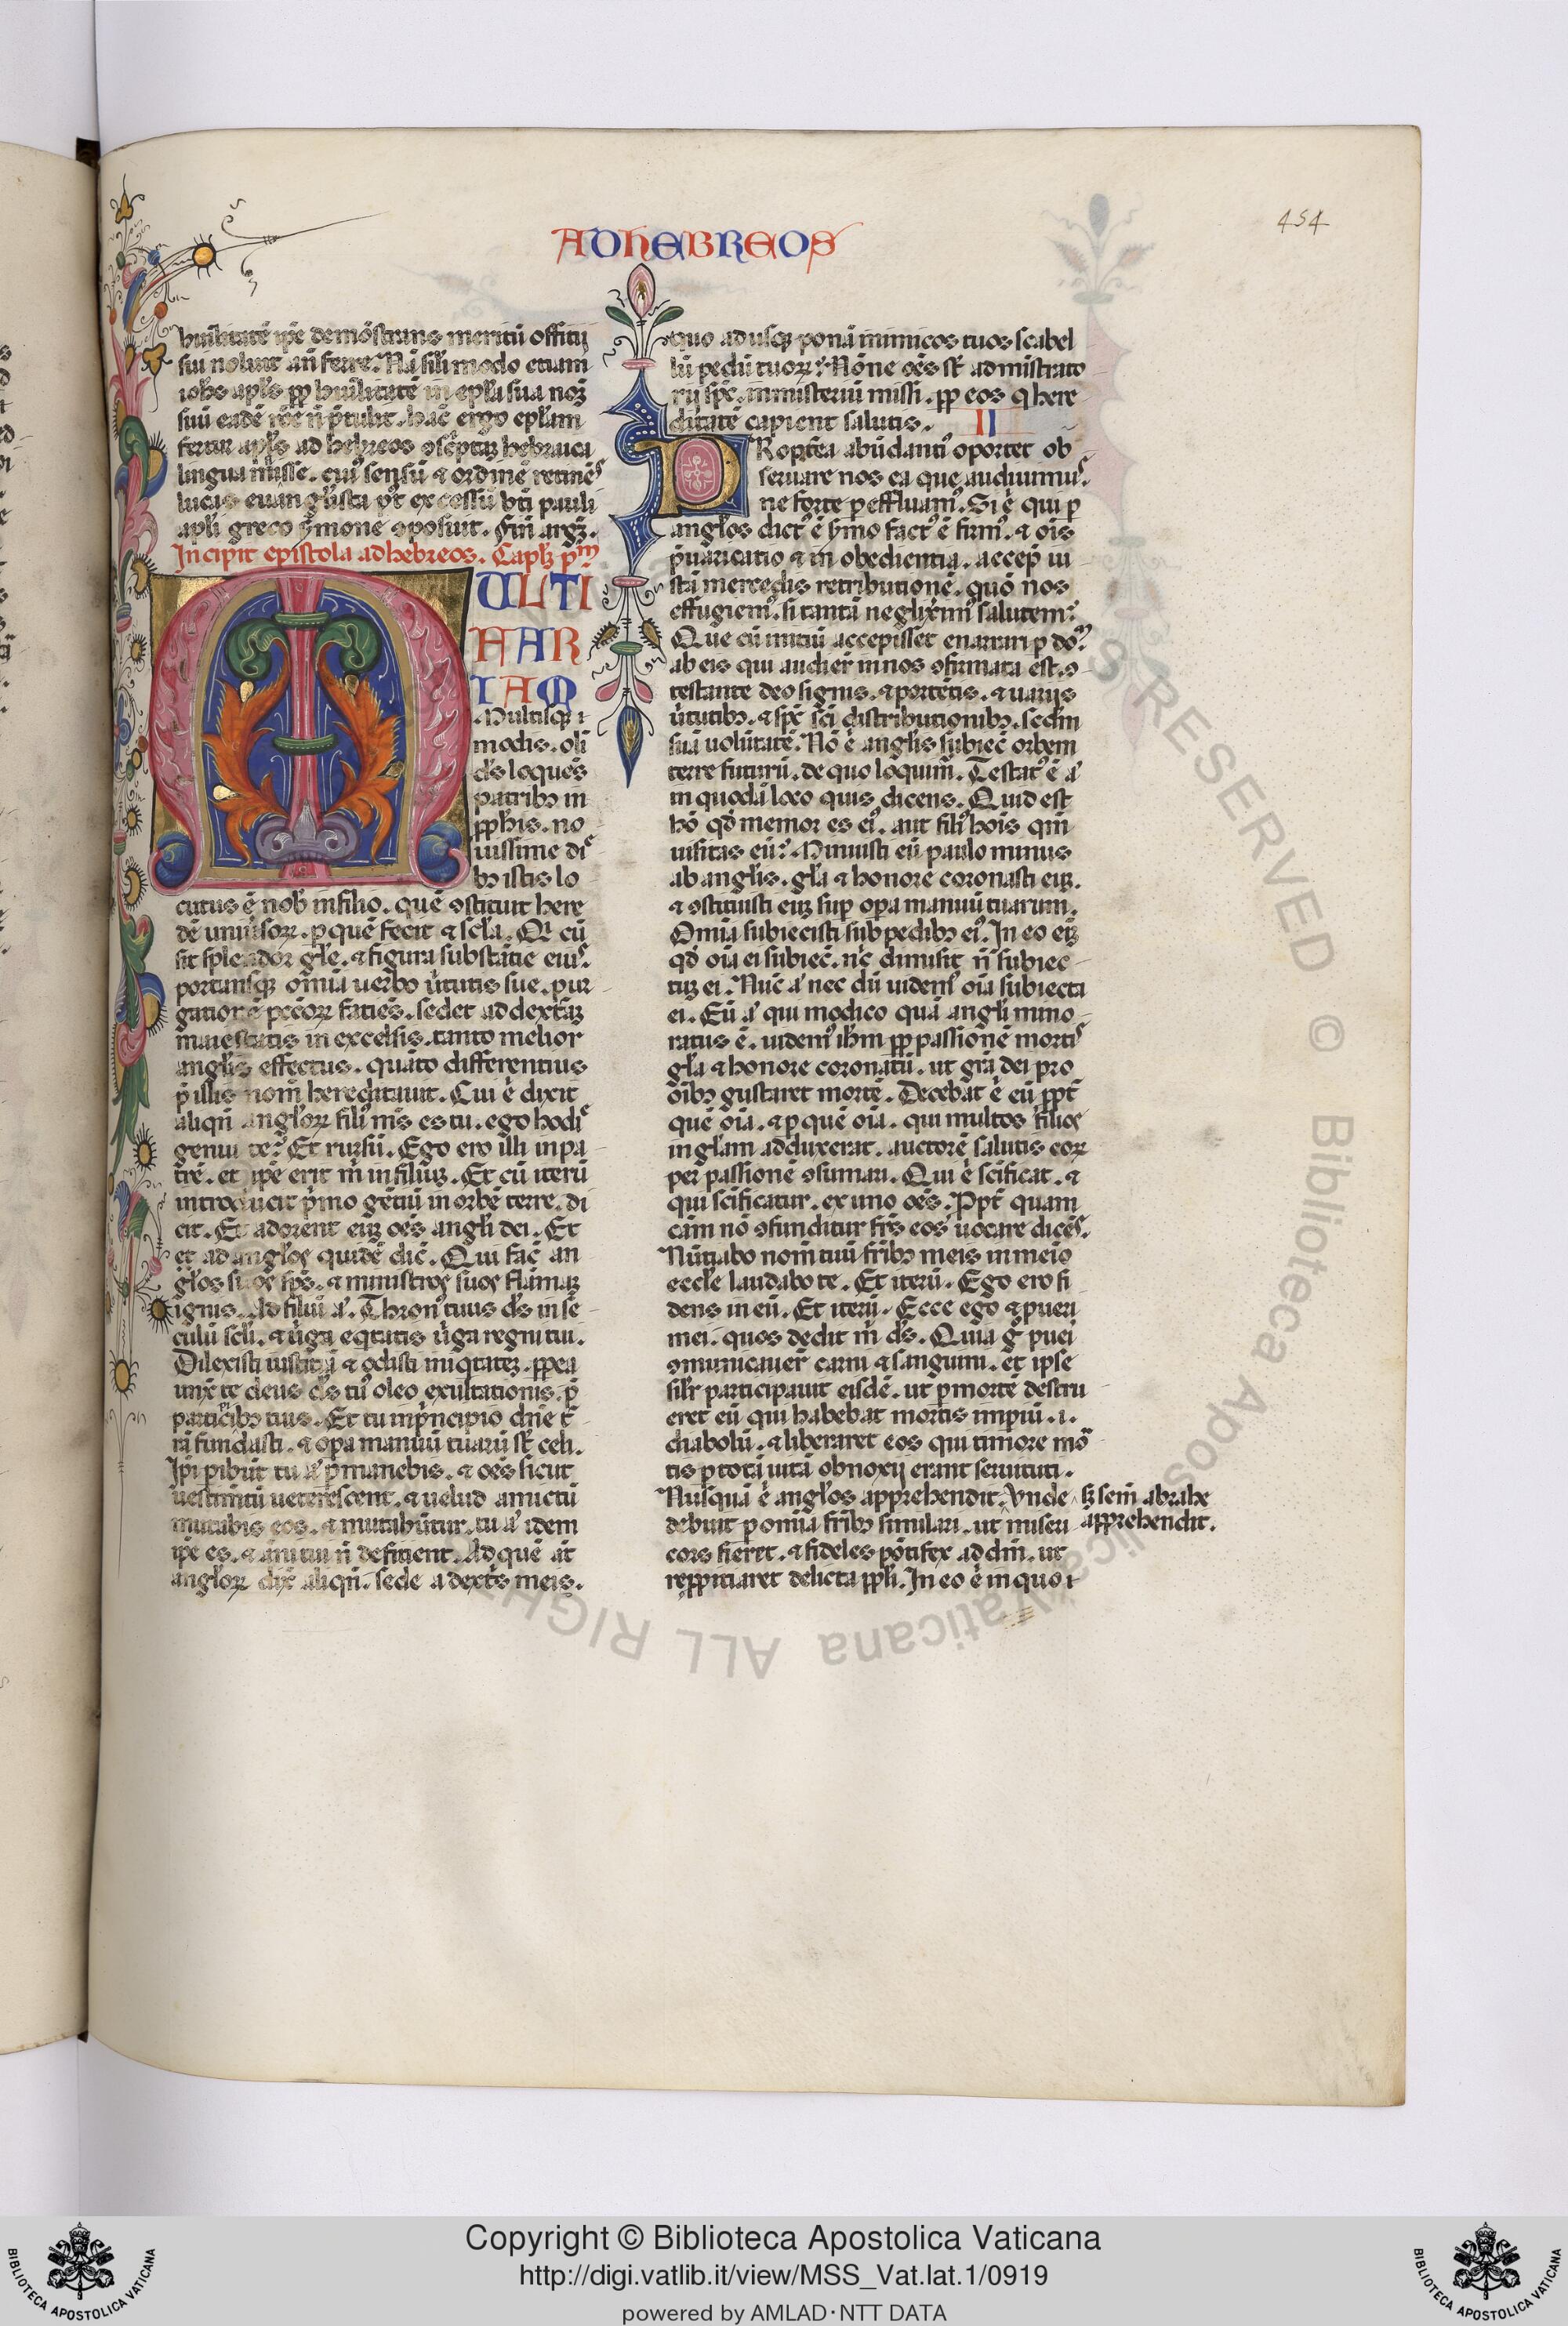 AD HEBREOS
454
huīlitatē ip̄e demōstrans meritū offitij
sui noluit an̄ferre. Nā sil̄i modo etiam
ioh̄s apl̄s pp̄ huīlitatē in epl̄a sua noɜ̄
suū eadē rōe n̄ p̄tulit. hāc ergo epl̄am
fertur apl̄s ad hebreos ɔsc̄ptaɜ hebraica
lingua misisse. cuiꝰ sensū ⁊ ordinē retinēs
lucas euangl̄ista pꝰt excessū bt̄i pauli
apl̄i greco s̄mone ɔposuit. Fin̄ argɜ̄.
Incipit epistola ad hebreos. Capl̄ɜ pᵐ
MULTI
FAR
IAM
Multisqɜ
modis. oli
d̄s loquēs
patribɜ in
pp̄his. no
uissime di
bɜ istis lo
cutus ē nob̄ in filio. quē ɔstituit here
dē uniūsoꝝ. ꝑ quē fecit ⁊ scl̄a. Qi cū
sit splendor gl̄e. ⁊ figura substātie eiuꝰ.
portansqɜ om̄ia uerbo ūtutis sue. pur
gationē pēcoꝝ fatiēs. sedet ad dext̄aɜ
maiestatis in excelsis. tanto melior
angl̄is effectus. quāto differentius
p̄ illis nom̄ hereditauit. Cui ē dixit
aliqn̄ angl̄oꝝ filiꝰ m̄s es tu. ego hodie
genui te? Et rursū. Ego ero illi in pa
trē. et ip̄e erit m̄ in filiuɜ. Et cū iterū
introducit p̄mogētiū in orbē terre. di
cit. Et adorent euɜ oēs angl̄i dei. Et
et ad angl̄os quidē dic̄. Qui fac̄ an
gl̄os suos sp̄s. ⁊ ministros suos flāmaɜ
ignis. Ad filiū ā. Thronꝰ tuus d̄s in sē
culū scl̄i. ⁊ ūga eqtatis ūga regni tui.
Dilexisti iustitiā ⁊ odisti iniqtateɜ. pp̄ea
unx̄ te deus d̄s tuꝰ oleo exultationis. p̄
particibɜ tuis. Et tu in p̄ncipio dn̄e t̄
rā fundasti. ⁊ opa manuū tuarū st̄ celi.
Ip̄i pibūt tu ā p̄manebis. ⁊ oēs sicut
uestimtū ueterescent. ⁊ uelud amictū
mutabis eos. ⁊ mutabūtur. tu ā idem
ip̄e es. ⁊ ān̄i tui n̄ defitient. Ad quē āt
angl̄oꝝ dix̄ aliqn̄. sede a dext̄s meis.
quo adusqɜ ponā inimicos tuos scabel
lū pedū tuoꝝ? Nōne oēs st̄ admistrato
rij sp̄c. in misteriū missi. pp̄ eos q̄ here
ditatē capient salutis. II
PRopt̄ea abūdantiꝰ oportet ob
seruare nos ea que audiuimuꝰ.
ne forte peffluamꝰ. Si ē qui ꝑ
angl̄os dictꝰ ē s̄mo factꝰ ē firmꝰ. ⁊ oīs
p̄uaricatio ⁊ in obedientia. accep̄ iu
stā mercedis retributionē. quō nos
effugiemꝰ. si tantā neglix̄imꝰ salutem?
Que cū initiū accepisset enarrari ꝑ dōᵐ
ab eis qui audier̄ in nos ɔfirmata est. ɔ
testante deo signis. ⁊ portētis. ⁊ uarijs
ūtutibɜ. ⁊ sp̄c sc̄i distributionibɜ. sedm̄
suā uolūtatē. Nō ē angl̄is subiec̄ orbem
terre futurū. de quo loquim̄. Testatꝰ ē ā
in quodā loco quis dicens. Quid est
hō qd̄ memor es eiꝰ. aut filiꝰ hoīs qm̄
uisitas eū? Minuisti eū paulo minus
ab angl̄is. gl̄a ⁊ honore coronasti euɜ.
⁊ ɔstituisti euɜ sup̄ opa manuū tuarum.
Omīa subiecisti sub pedibɜ eiꝰ. In eo eiɜ
qd̄ oīa ei subiec̄. nc̄ dimisit n̄ subiec
tuɜ ei. Nūc ā nec dū uidemꝰ oīa subiecta
ei. Eū ā qui modico quā angl̄i mino
ratus ē. uidemꝰ ih̄m pp̄ passionē mortiꝰ
gl̄a ⁊ honore coronatū. ut gr̄a dei pro
oībɜ gustaret mortē. Decebat ē eū pp̄t
quē oīa. ⁊ ꝑ quē oīa. qui multos filios
in gl̄am adduxerat. auctorē salutis eoꝝ
per passionē ɔsumari. Qui ē sc̄ificat. ⁊
qui sc̄ificatur. ex uno oēs. Ppt̄ quam
cām nō ɔfunditur fr̄s eos uocare dicēs.
Nūtiabo nom̄ tuū frībɜ meis in meīo
eccl̄e laudabo te. Et iterū. Ego ero fi
dens in eū. Et iterū. Ecce ego ⁊ pueri
mei. quos dedit m̄ d̄s. Quia ḡ puei
ɔmunicauer̄ carni ⁊ sanguini. et ipse
sil̄r participauit eisdē. ut ꝑ mortē destru
eret eū qui habebat mortis impiū. i.
diabolū. ⁊ liberaret eos qui timore mō
tis ꝑ totā uitā obnoxij erant seruituti.
Nusquā ē angl̄os apprehendit. Vnde
sɜ sem̄ abrahe
apprehendit.
debuit ꝑ omīa frībɜ similari. ut miseri
cors fieret. ⁊ fideles pōtifex ad dm̄. ut
repp̄itiaret delicta pp̄li. In eo ē in quo
Copyright © Biblioteca Apostolica Vaticana
http://digi.vatlib.it/view/MSS_Vat.lat.1/0919
powered by AMLAD·NTT DATA
BIBLIOTECA APOSTOLICA VATICANA
BIBLIOTECA APOSTOLICA VATICANA
© Biblioteca Apostolica Vaticana ALL RIGHTS RESERVED